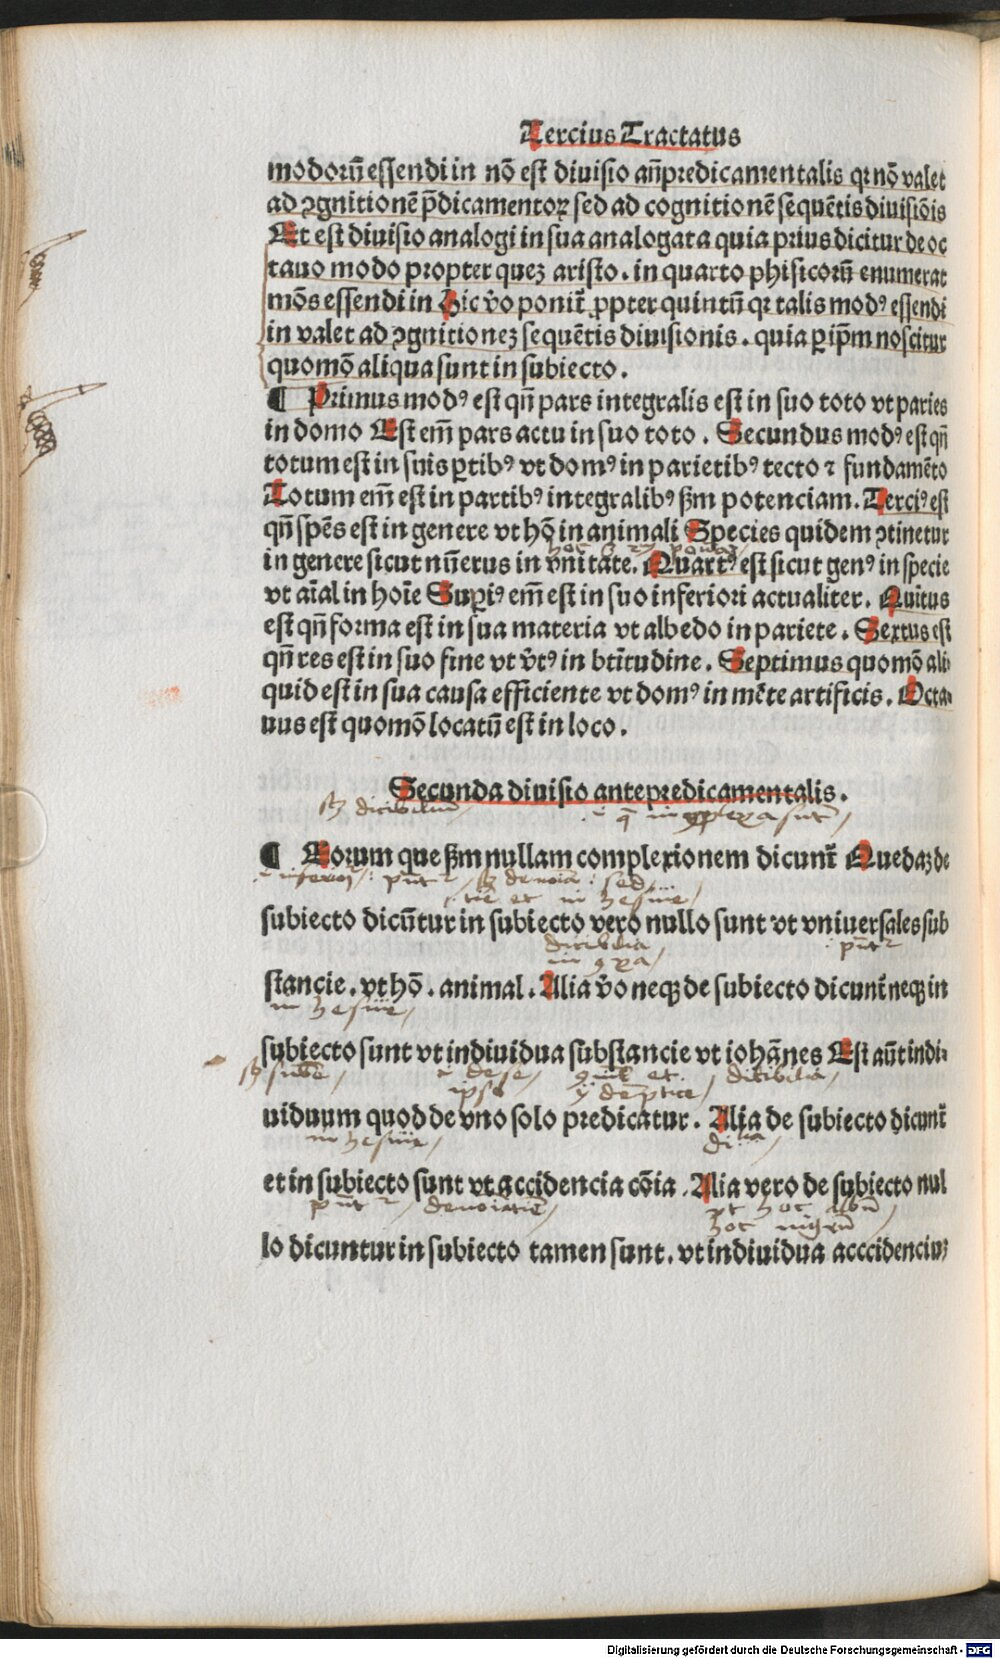 Tercius Tractatus
modorū essendi in nō est diuisio añpredicamentalis qꝛ nō valet
ad ꝯgnitionē p̄dicamentoꝝ sed ad cognitionē sequētis diuisiōis
Et est diuisio analogi in sua analogata quia prius dicitur de oc
tauo modo propter quez aristo. in quarto phisicorū enumerat
mōs essendi in Hic v̄o ponit̄ ꝓpter quintū qꝛ talis modꝰ essendi
in valet ad ꝯgnitionez sequētis diuisionis. quia ꝑ ip̄m noscitur
quomō aliqua sunt in subiecto.
¶ Primus modꝰ est qn̄ pars integralis est in suo toto vt paries
in domo Est em̄ pars actu in suo toto. Secundus modꝰ est qn̄
totum est in suis ꝑtibꝰ vt domꝰ in parietibꝰ tecto ⁊ fundamēto
Totum em̄ est in partibꝰ integralibꝰ ẜm potenciam. Terciꝰ est
qn̄ spēs est in genere vt hō in animali Species quidem ꝯtinetur
in genere sicut nūerus in vnitate. Quartꝰ est sicut genꝰ in specie
vt aīal in hoīe Supiꝰ em̄ est in suo inferiori actualiter. Quitus
est qn̄ forma est in sua materia vt albedo in pariete. Sextus est
qn̄ res est in suo fine vt v̄tꝰ in btītudine. Septimus quomō ali
quid est in sua causa efficiente vt domꝰ in mēte artificis. Octa
uus est quomō locatū est in loco.
Secunda diuisio antepredicamentalis.
dicibilium
¶ Eorum que ẜm nullam complexionem dicunt̄ Quedaz de
subiecto dicūtur in subiecto vero nullo sunt vt vniuersales sub
dicibilia
stancie. vt hō. animal. Alia v̄o neqꝫ de subiecto dicunt̄ neqꝫ in
subiecto sunt vt indiuidua substancie vt iohānes Est aūt indi
dicibilia
uiduum quod de vno solo predicatur. Alia de subiecto dicunt̄
et in subiecto sunt vt accidencia cōia. Alia vero de subiecto nul
lo dicuntur in subiecto tamen sunt. vt indiuidua acccidenciuz
Digitalisierung gefördert durch die Deutsche Forschungsgemeinschaft - DFG